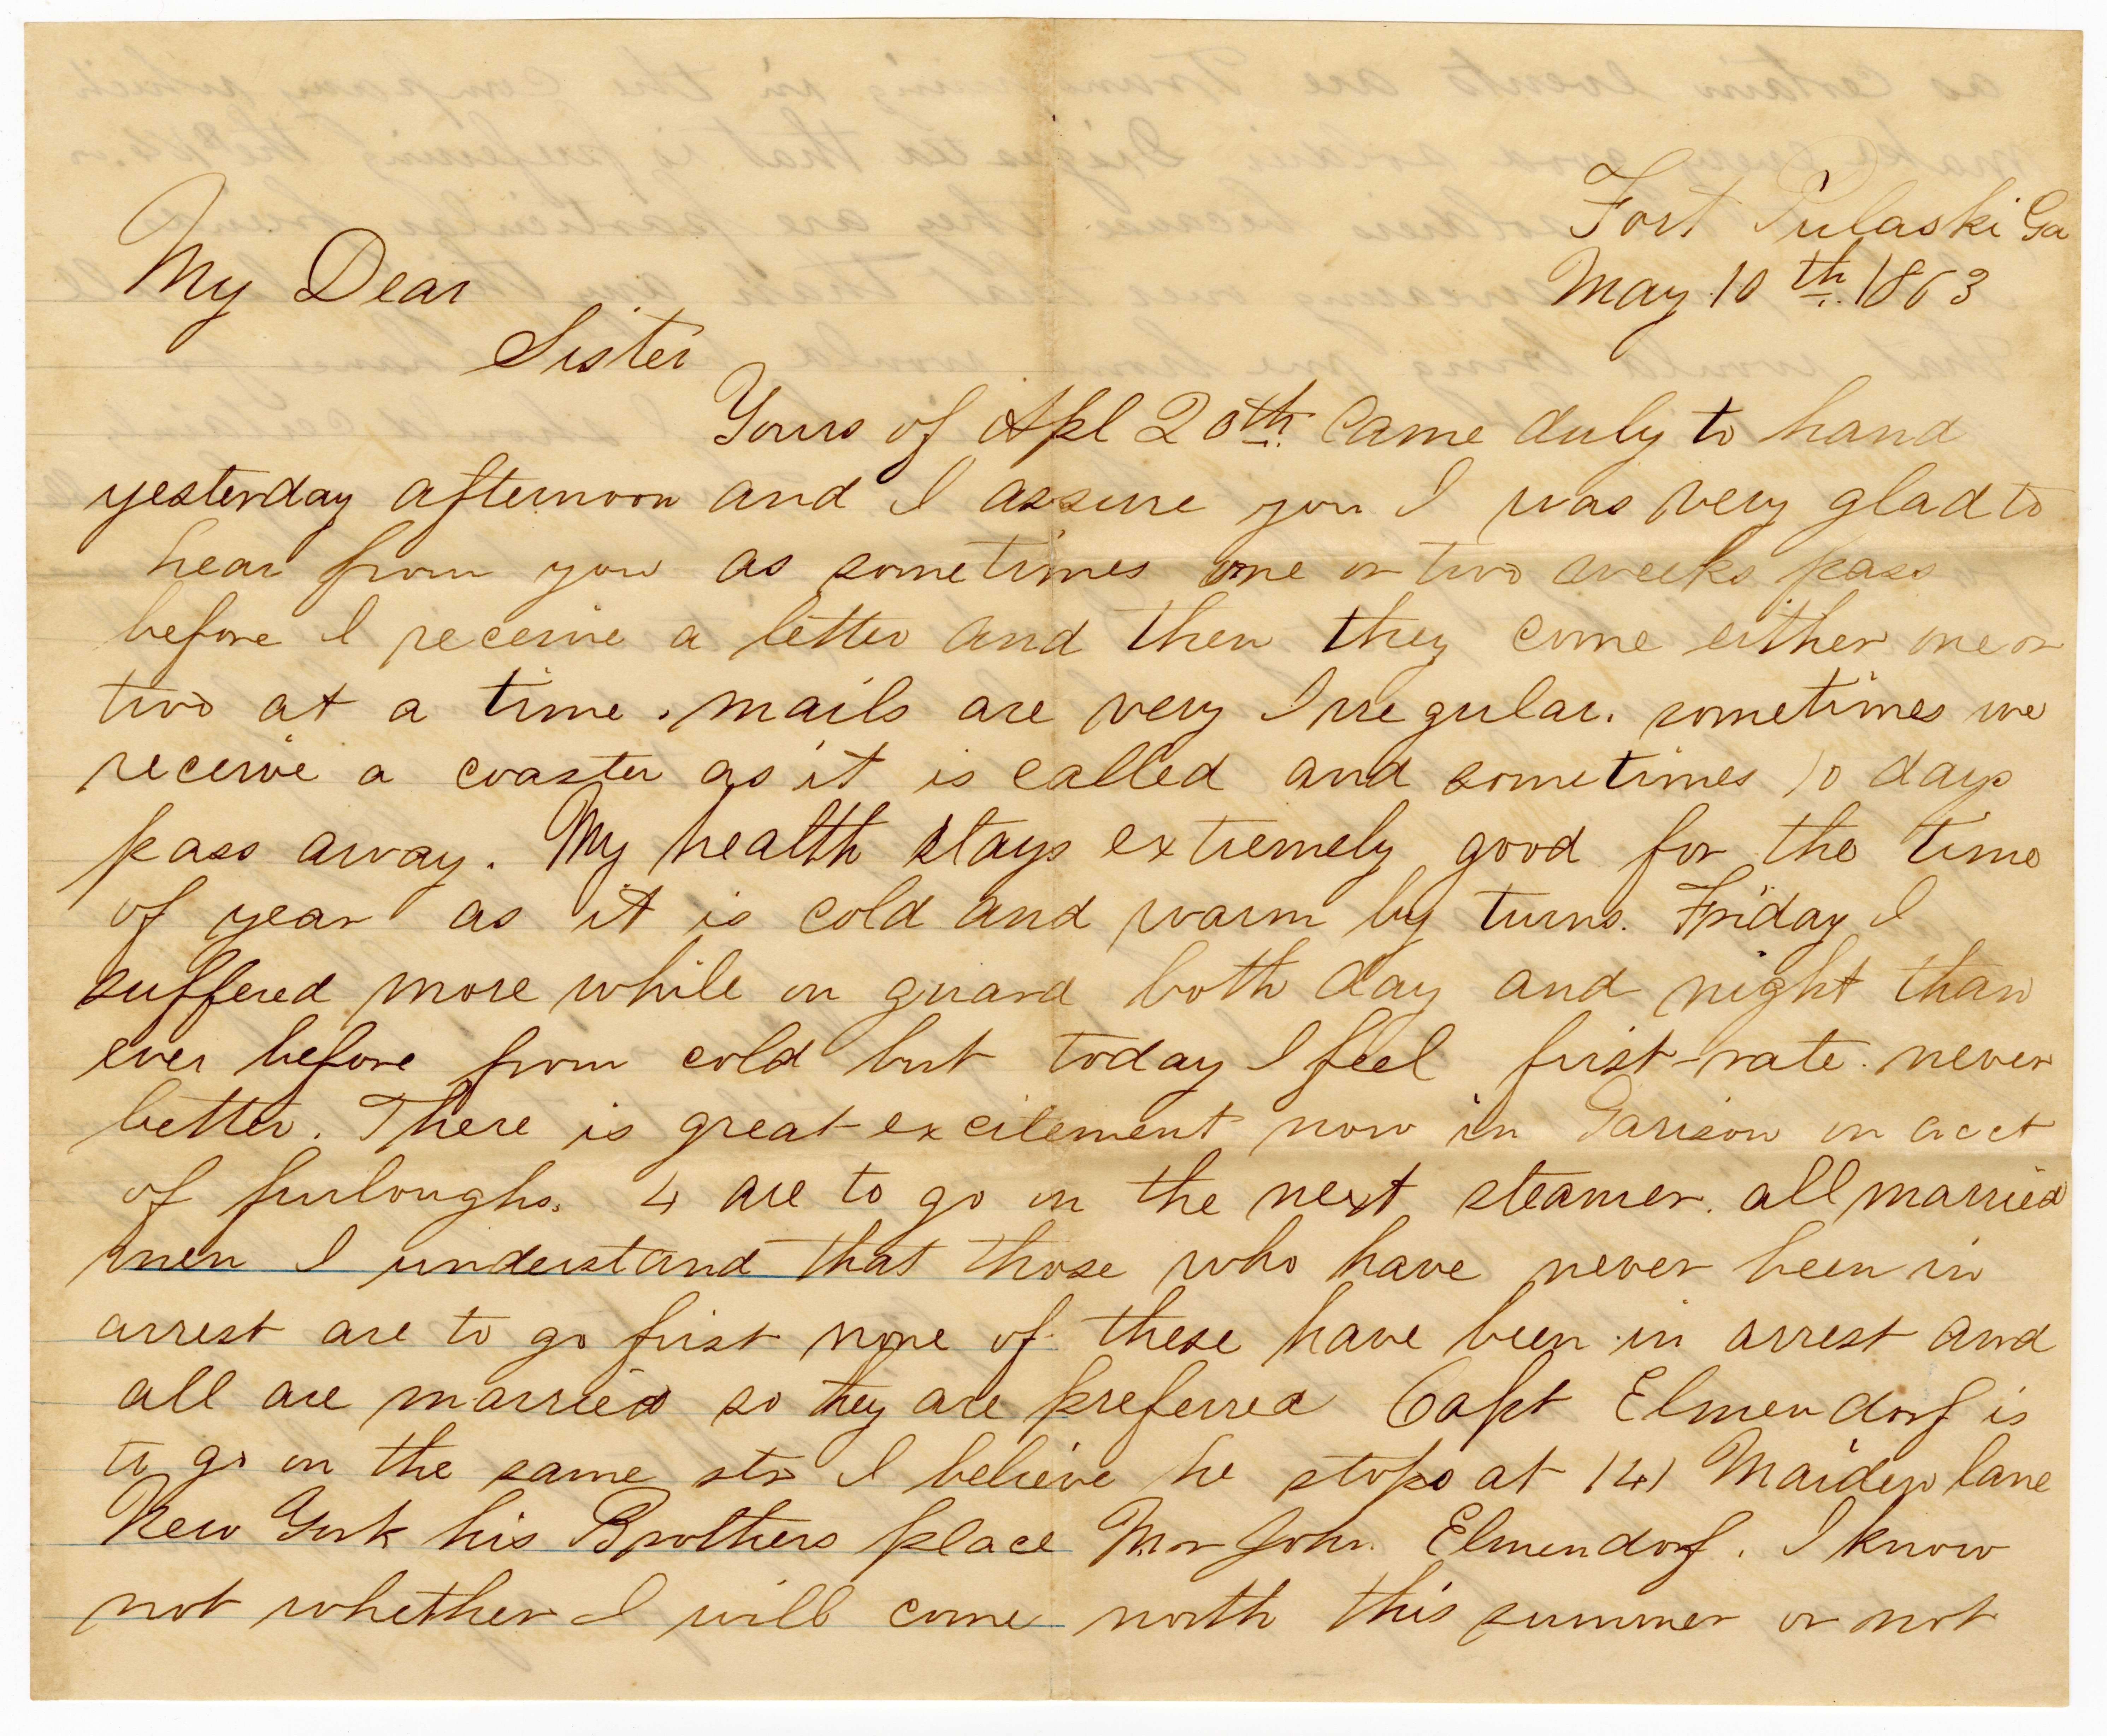 Fort Pulaski Ga
May 10th. 1863
My Dear
Sister
Yours of Apl 20th. Came duly to hand
yesterday afternoon and I assure you I was very glad to
hear from you as sometimes one or two weeks pass
before I receive a letter and then they come either one or
two at a time. mails are very Irregular. sometimes we
receive a coaster as it is called and sometimes 10 days
pass away. My health stays extremely good for the time
of year as it is cold and warm by turns. Friday I
suffered more while on guard both day and night than
ever before from cold but today I feel first-rate. never
better. There is great excitement now in Garison on acct
of furloughs. 4 are to go on the next steamer. all married
men I understand that those who have never been in
arrest are to go first none of these have been in arrest and
all are married so they are preferred Capt Elmendorf is
to go on the same str I believe he stops at 141 Maiden lane
New York his Brothers place Mr John Elmendorf. I know
not whether I will come north this summer or not